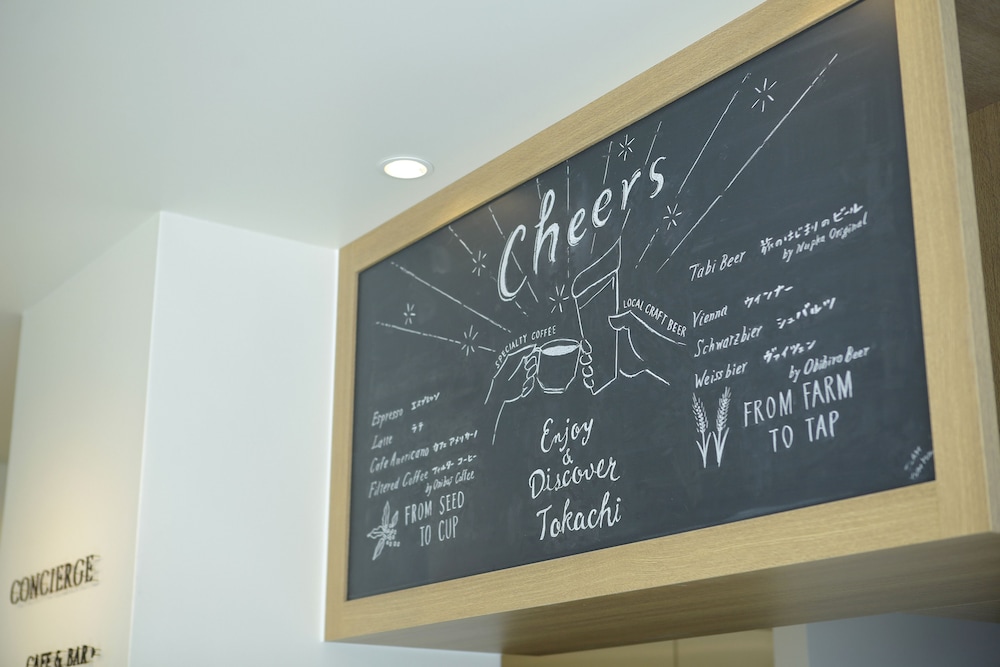 Cheers
SPECIALTY COFFEE
LOCAL CRAFT BEER
Enjoy
&
Discover
Tokachi
Espresso エスプレッソ
Latte ラテ
Cafe Americano カフェアメリカーノ
Filtered Coffee フィルター コーヒー
by Onibus Coffee
FROM SEED
TO CUP
Tabi Beer 旅のはじまりのビール
by Nupka Original
Vienna ウインナー
Schwarzbier シュバルツ
Weissbier ヴァイツェン
by Obihiro Beer
FROM FARM
TO TAP
CONCIERGE
CAFE & BAR